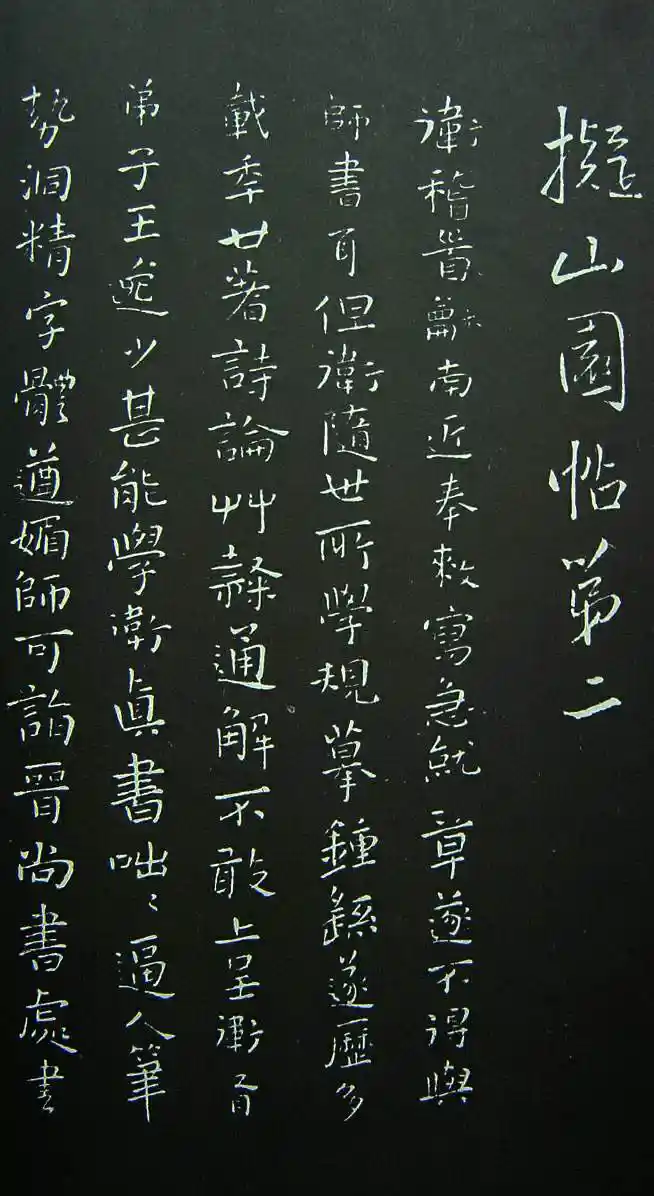 擬山園帖第二
衛稽首龢南近奉敕寫急就章遂不得與
師書耳但衛隨世所學規摹鍾繇遂歷多
載年廿著詩論艸隸通解不敢上呈衛有
弟子王逸少甚能學衛真書咄〻逼人筆
勢洞精字體遒媚師可詣晉尚書處書